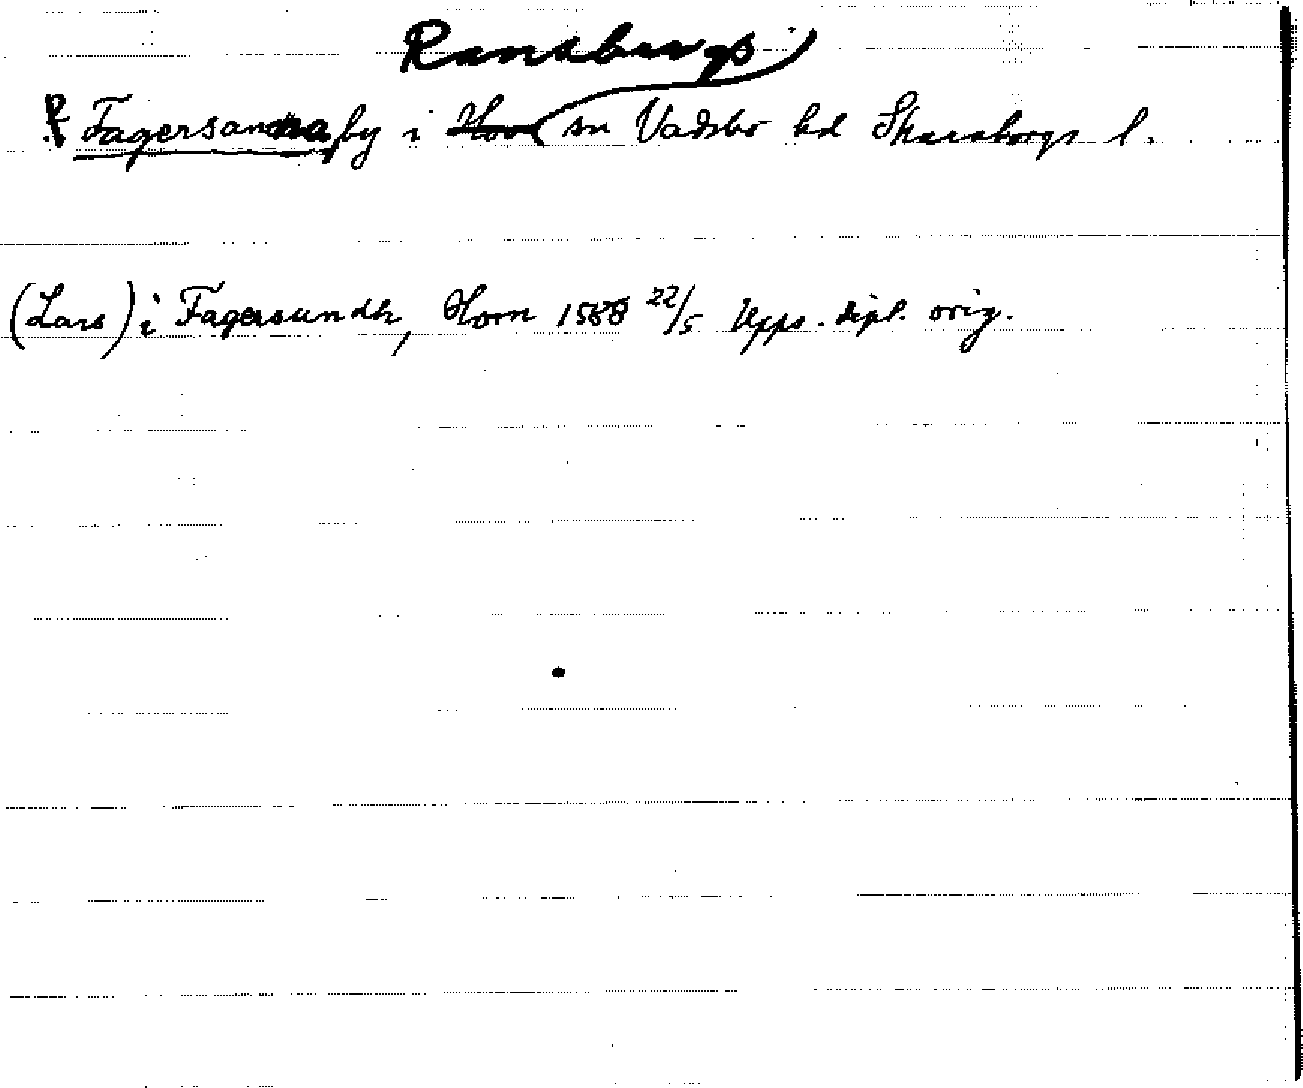 Ransbergs
Fagersanna by i Horn sn Vadsbo hd Skaraborgs l.
(Lars) i Fagersundh, Horn 1588 22/5 Upps. dipl. orig.